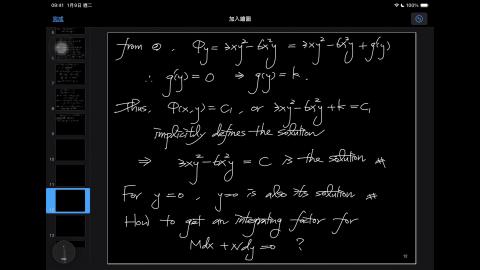 09:41 1月9日 週二
100%
完成
加入繪圖
from ②, φy = 3xy²-6x²y = 3xy²-6x²y + g'(y)
∴ g'(y) = 0 ⇒ g(y) = k.
Thus, φ(x,y) = C₁, or 3xy²-6x²y + k = C₁
implicitly defines the solution
⇒ 3xy²-6x²y = C is the solution
For y=0, y=0 is also its solution
How to get an integrating factor for
Mdx + Ndy = 0 ?
10
11
12
13